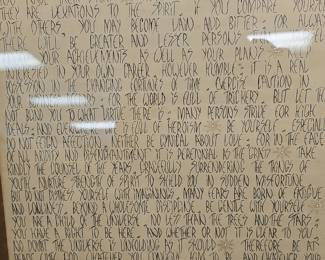 ARE VEXATIONS TO THE SPIRIT. IF YOU COMPARE YOURSELF
WITH OTHERS, YOU MAY BECOME VAIN AND BITTER; FOR ALWAYS
WILL BE GREATER AND LESSER PERSONS
YOUR ACHIEVEMENTS AS WELL AS YOUR PLANS
INTERESTED IN YOUR OWN CAREER, HOWEVER HUMBLE; IT IS A REAL
POSSESSION IN THE CHANGING FORTUNES OF TIME. EXERCISE CAUTION IN
YOUR FOR THE WORLD IS FULL OF TRICKERY. BUT LET THIS
NOT BLIND YOU TO WHAT THERE IS; MANY PERSONS STRIVE FOR HIGH
IDEALS; AND EVERYWHERE IS FULL OF HEROISM BE YOURSELF. ESPECIALLY
DO NOT FEIGN AFFECTION. NEITHER BE CYNICAL ABOUT LOVE; FOR IN THE FACE
OF ALL ARIDITY AND DISENCHANTMENT IT IS PERENNIAL AS THE GRASS TAKE
KINDLY THE COUNSEL OF THE YEARS, GRACEFULLY SURRENDERING THE THINGS OF
YOUTH. NURTURE STRENGTH OF SPIRIT TO SHIELD YOU IN SUDDEN MISFORTUNE.
BUT DO NOT DISTRESS YOURSELF WITH IMAGININGS. MANY FEARS ARE BORN OF FATIGUE
AND LONELINESS. BEYOND A WHOLESOME DISCIPLINE, BE GENTLE WITH YOURSELF.
YOU ARE A CHILD OF THE UNIVERSE, NO LESS THAN THE TREES AND THE STARS;
YOU HAVE A RIGHT TO BE HERE. AND WHETHER OR NOT IT IS CLEAR TO YOU,
NO DOUBT THE UNIVERSE IS UNFOLDING AS IT SHOULD THEREFORE BE AT
PEACE WITH GOD, WHATEVER YOU CONCEIVE HIM TO BE, AND WHATEVER YOUR